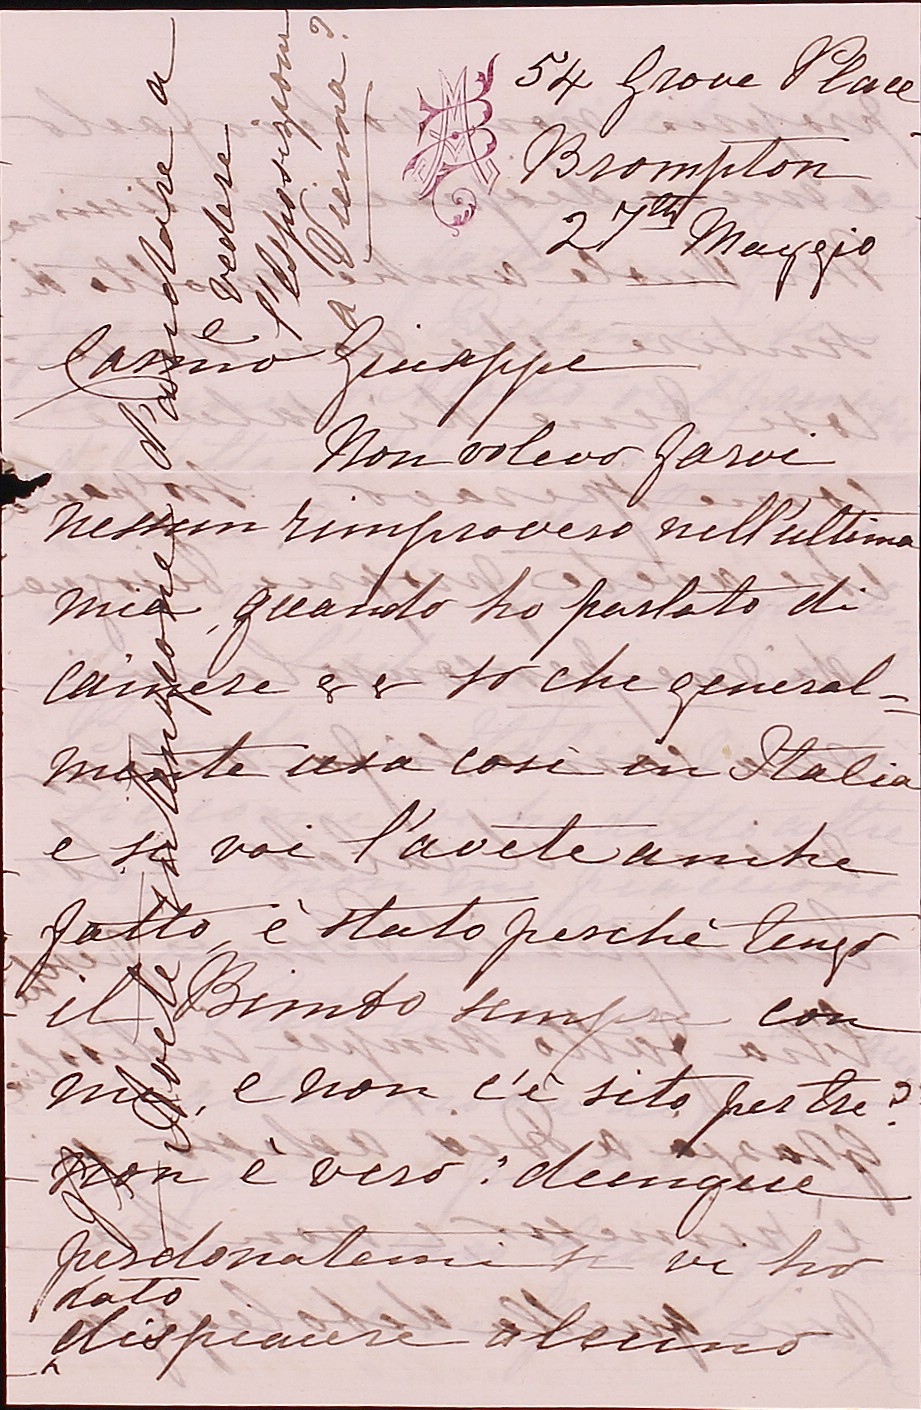 54 Grove Place
Brompton
27th Maggio
Carmo Giuseppe
Non volevo farvi
nessun rimprovero nell'ultima
mia, quando ho parlato di
camere & & so che general-
mente usa cosi in Italia
e se voi l'avete anche
fatto, è stato perchè tengo
il Bimbo sempre con
me, e non c'è sito per tre?
non è vero: dunque
perdonatemi se vi ho
dato
dispiacere alcuno
Avete intenzione d'andare a
vedere
l'Esposizione
a Vienna?